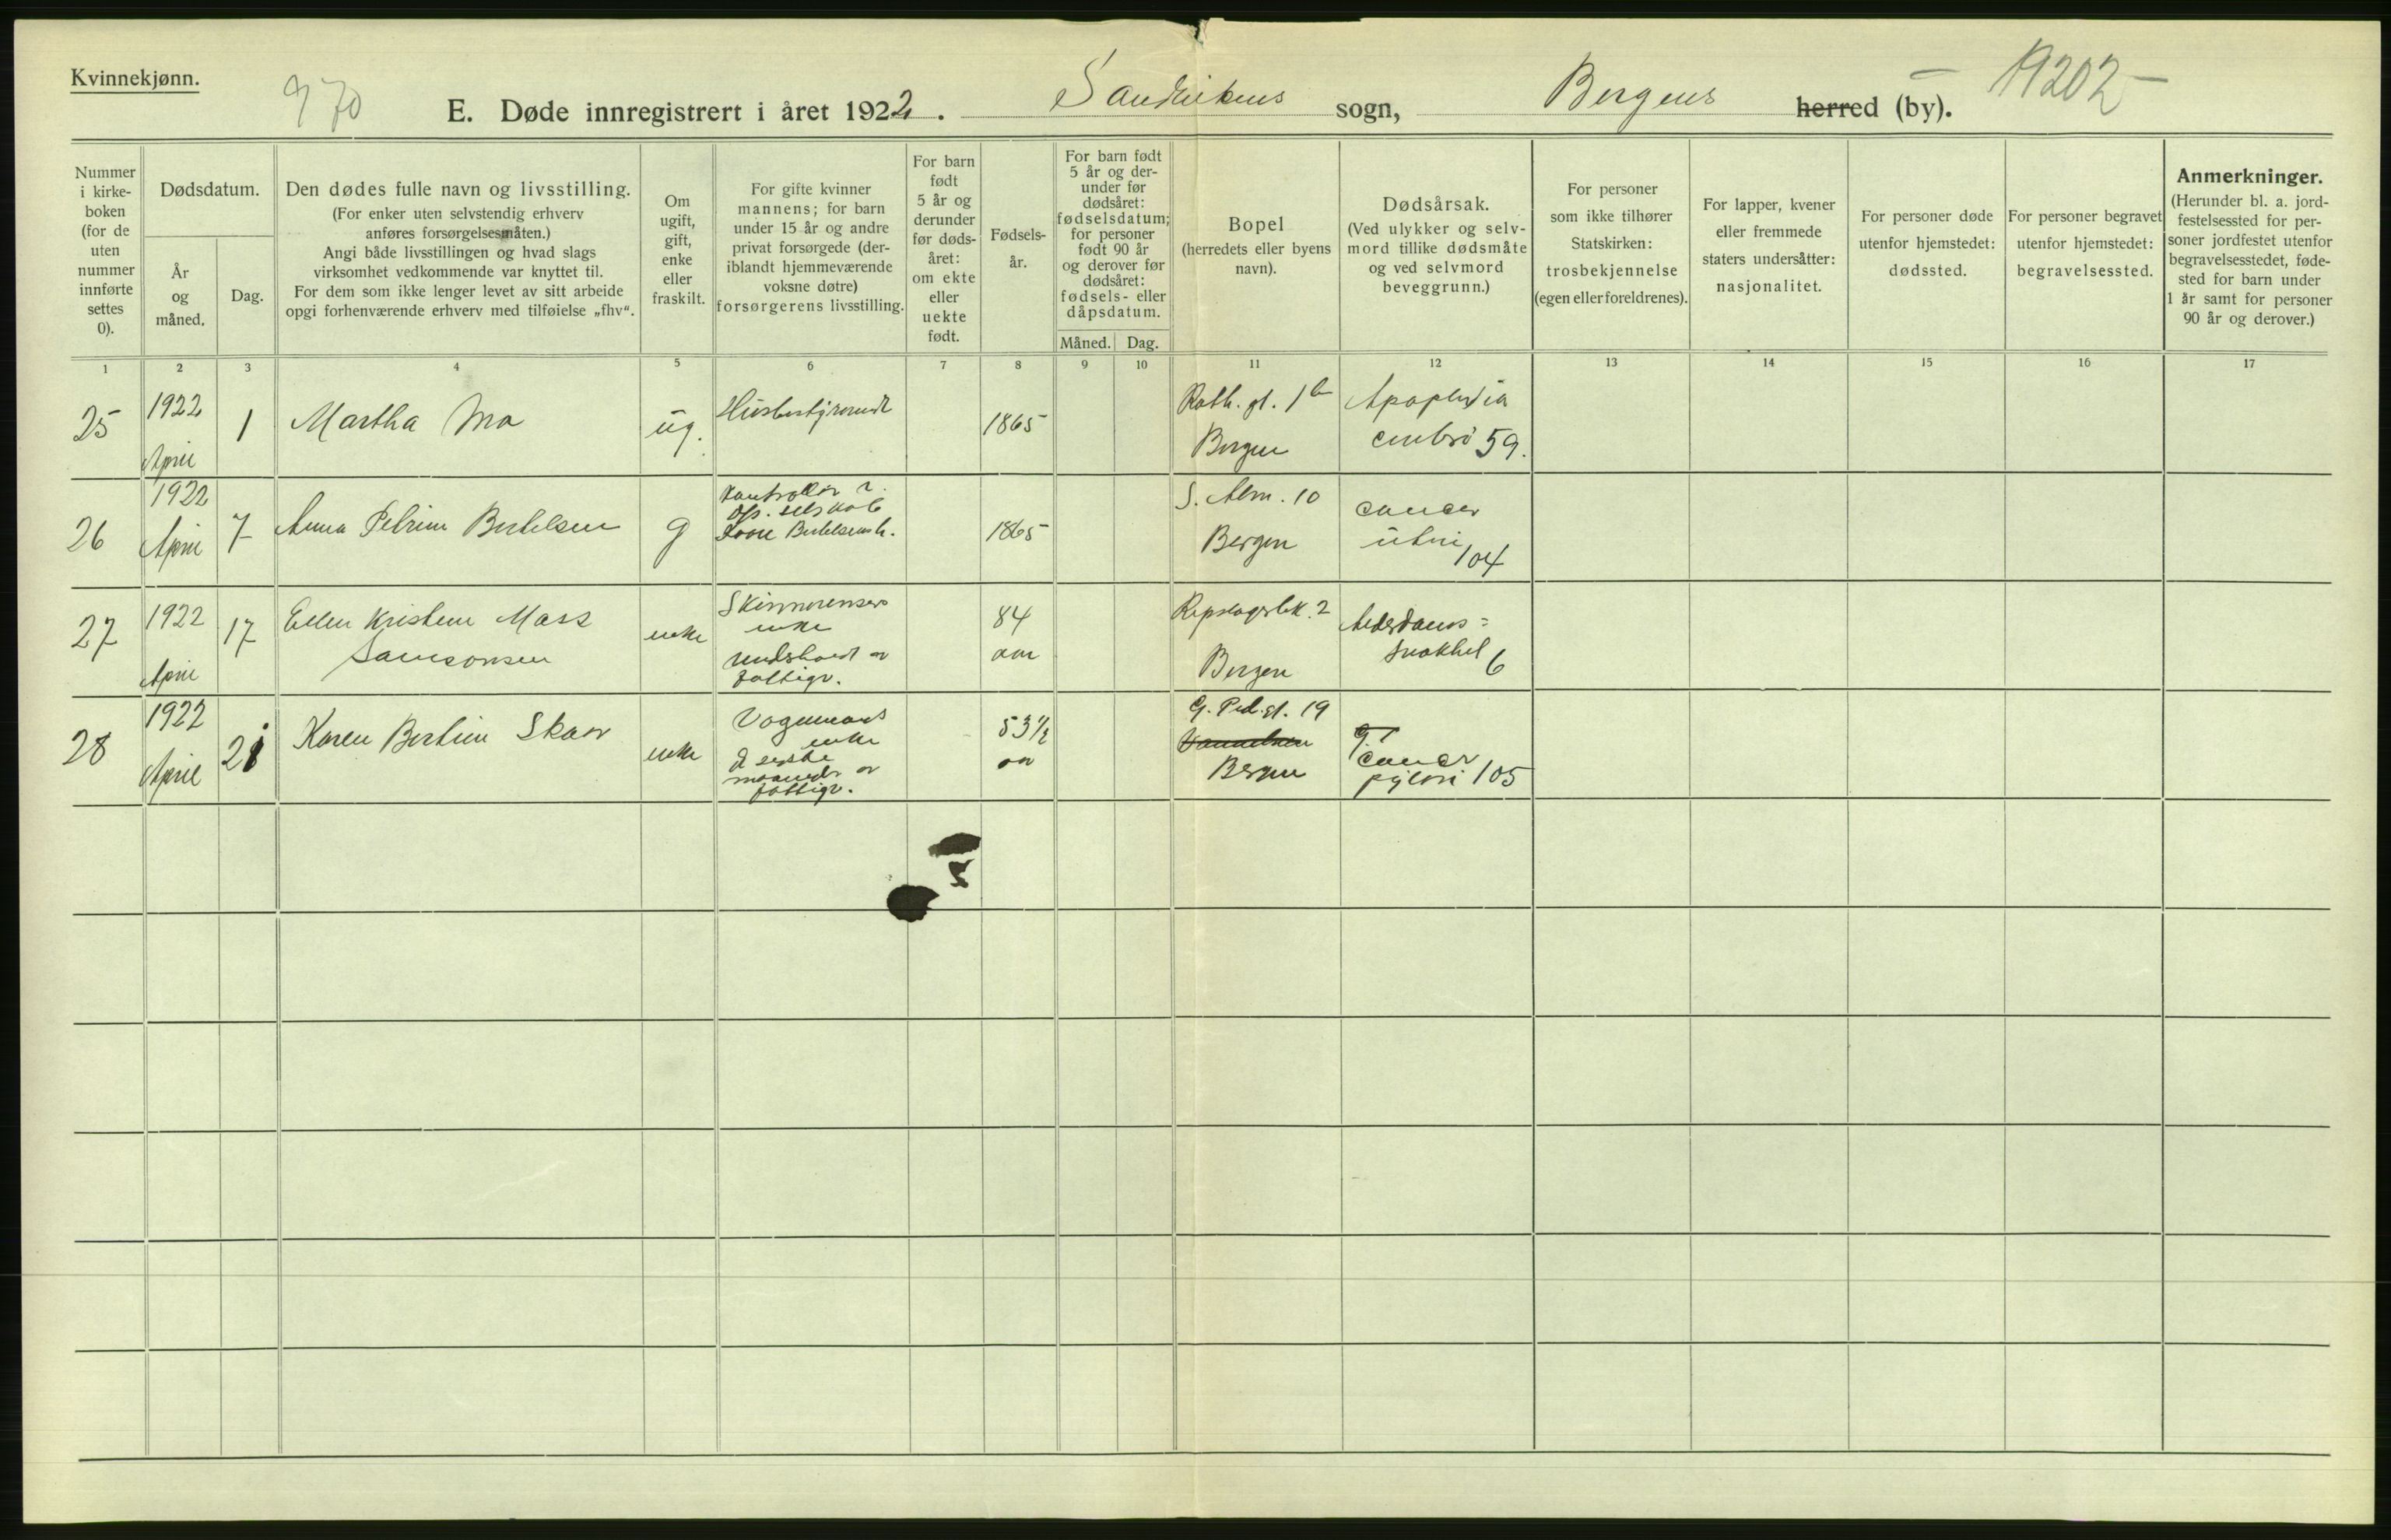 Kvinnekjønn.
970
E. Døde innregistrert i året 1922. Sandvikens sogn, Bergens herred (by).
19202
Nummer
i kirke-
boken
(for de
uten
nummer
innførte
settes
0).
Dødsdatum.
År
og
måned.
Dag.
Den dødes fulle navn og livsstilling.
(For enker uten selvstendig erhverv
anføres forsørgelsesmåten.)
Angi både livsstillingen og hvad slags
virksomhet vedkommende var knyttet til.
For dem som ikke lenger levet av sitt arbeide
opgi forhenværende erhverv med tilføielse „fhv“.
Om
ugift,
gift,
enke
eller
fraskilt.
For gifte kvinner
mannens; for barn
under 15 år og andre
privat forsørgede (der-
iblandt hjemmeværende
voksne døtre)
forsørgerens livsstilling.
For barn
født
5 år og
derunder
før døds-
året:
om ekte
eller
uekte
født.
Fødsels-
år.
For barn født
5 år og der-
under før
dødsåret:
fødselsdatum;
for personer
født 90 år
og derover før
dødsåret:
fødsels- eller
dåpsdatum.
Måned. Dag.
Bopel
(herredets eller byens
navn).
Dødsårsak.
(Ved ulykker og selv-
mord tillike dødsmåte
og ved selvmord
beveggrunn.)
For personer
som ikke tilhører
Statskirken:
trosbekjennelse
(egen eller foreldrenes).
For lapper, kvener
eller fremmede
staters undersåtter:
nasjonalitet.
For personer døde
utenfor hjemstedet:
dødssted.
For personer begravet
utenfor hjemstedet:
begravelsessted.
Anmerkninger.
(Herunder bl. a. jord-
festelsessted for per-
soner jordfestet utenfor
begravelsesstedet, føde-
sted for barn under
1 år samt for personer
90 år og derover.)
1 2 3 4 5 6 7 8 9 10 11 12 13 14 15 16 17
25
1922
April
1
Martha Mo
ug.
Husbestyrerinde
1865
Roth. gt. 1b
Bergen
Apoplexia
cerebri 59.
26
1922
April
7
Anna Petrine Bertelsen
g
Kontrollør
selskab
Bertelsens h.
1865
S. Alm. 10
Bergen
cancer
uteri
104
27
1922
April
17
Ellen Kristine Mass
Samsonsen
enke
Skinnerensers
enke
understøtt av
fattigv.
84
aar
Repslagerbk. 2
Bergen
Alderdoms=
svakhet
6
28
1922
April
21
Karen Bertine Skaar
enke
Vognmands
enke
d sidste
maaneder av
fattigv.
53 1/2
aar
G. Ped. gt. 19
Bergen
cancer
pylori 105